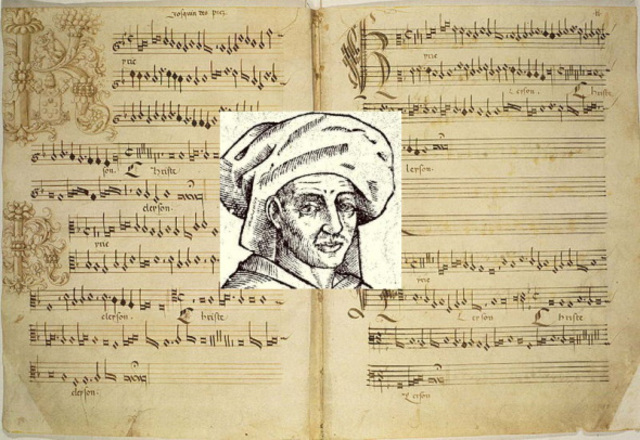 Josquin des prez.
yrie
son. Christe
eleyson.
yrie
eleyson. Christe
eleyson.
yrie
Leyson. Christe
leyson.
yrie
Leyson Christe
Leyson